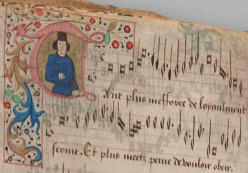 Tant plus mefforce de loyaulment
seruir. Et plus mectz peine de vouloir obeir.